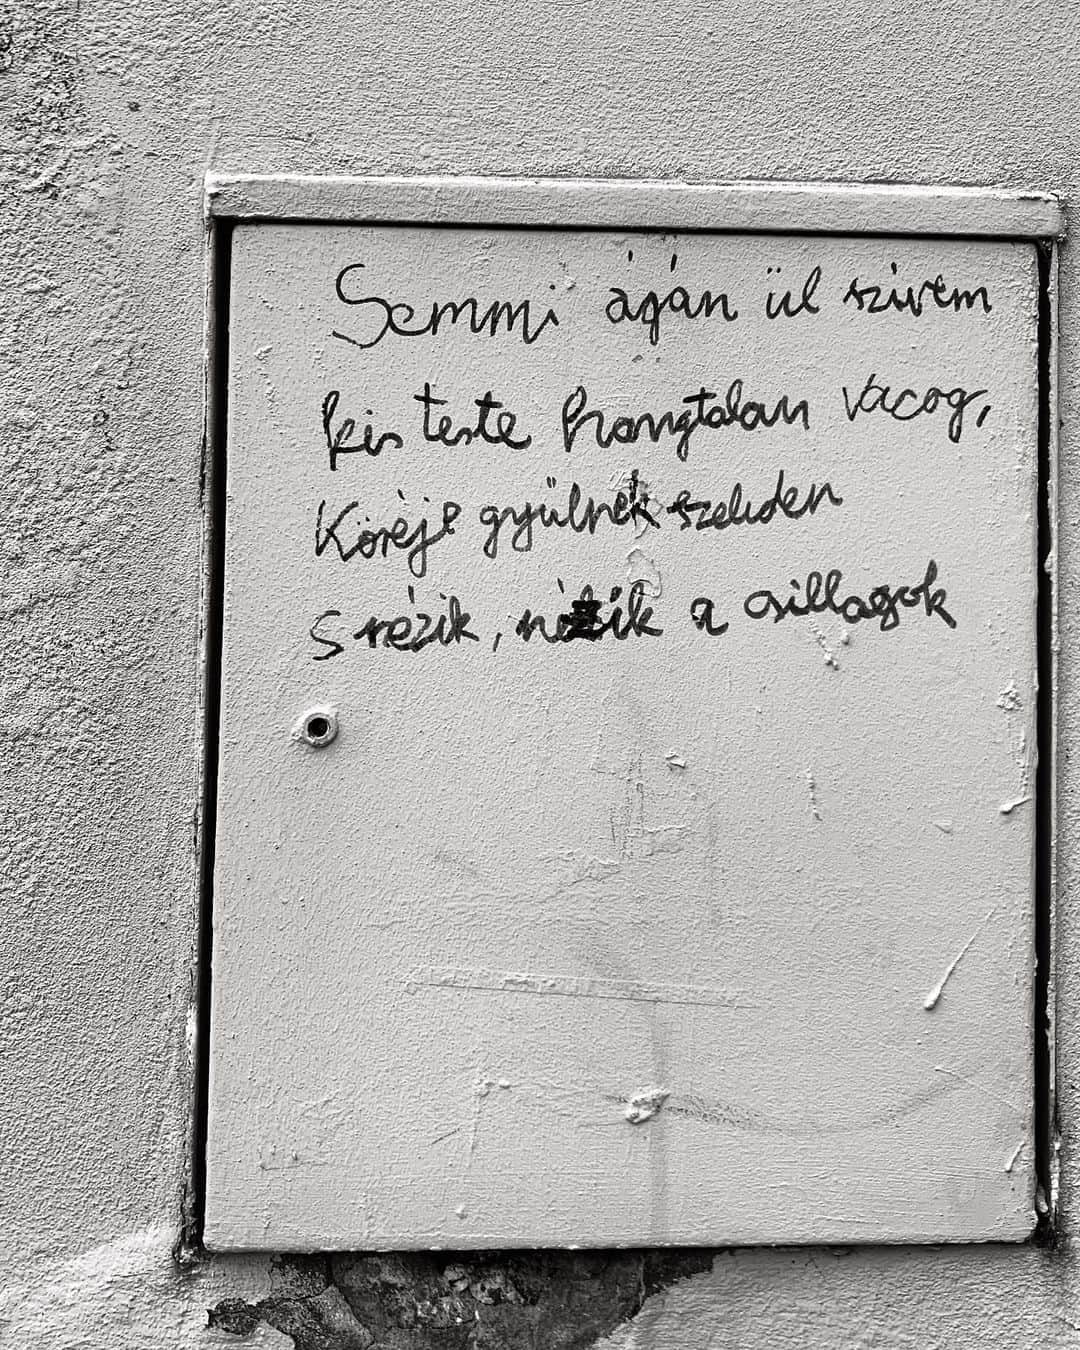 Semmi ágán ül szivem
kis teste hangtalan vacog,
Köréje gyülnek szeliden
s nézik, nézik a csillagok